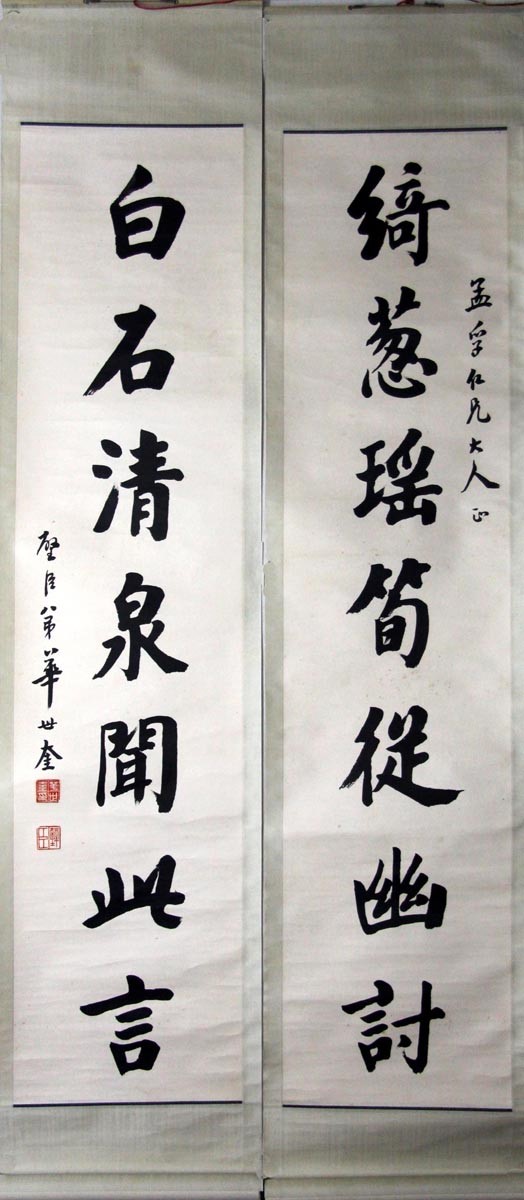 孟孚仁兄大人正
綺蔥瑤筍從幽討
白石清泉聞此言
璧臣弟華世奎